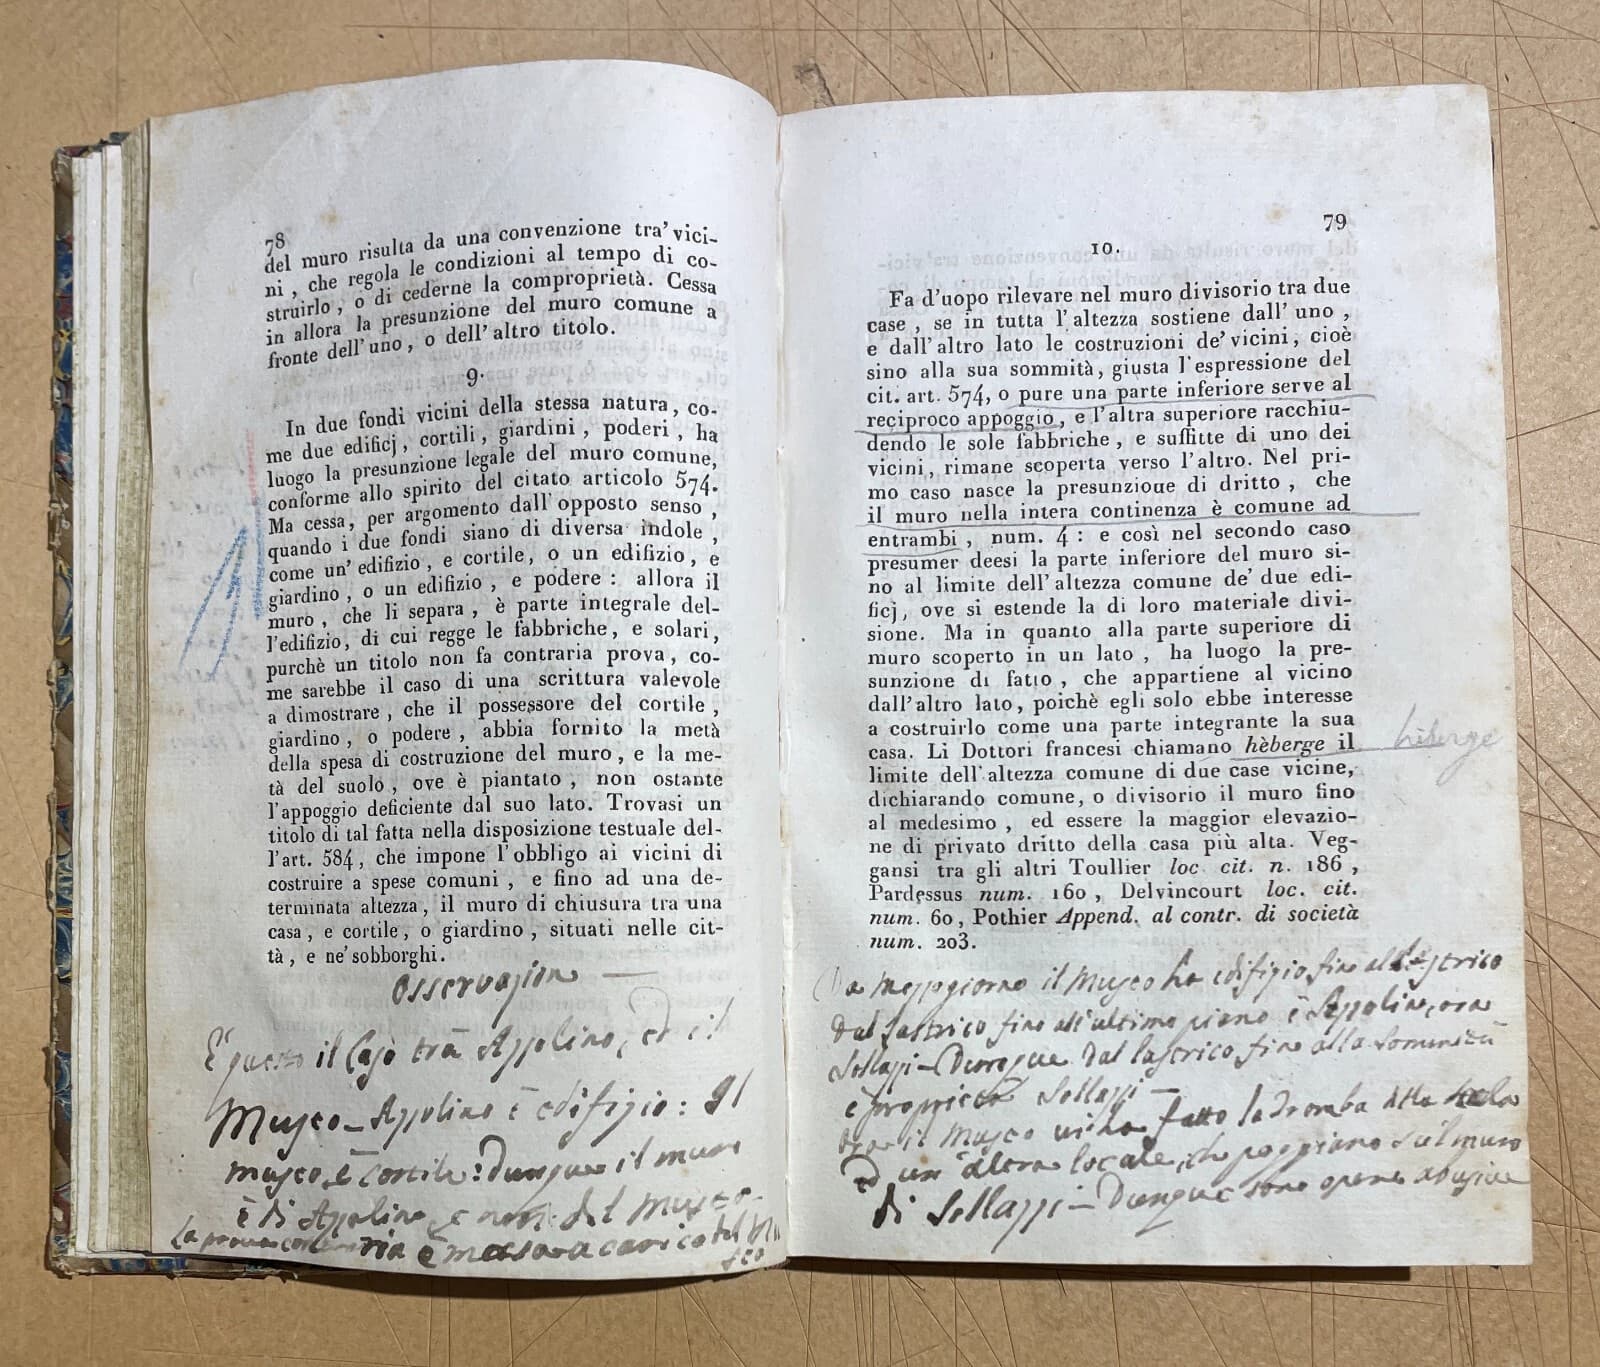 78
del muro risulta da una convenzione tra' vici-
ni, che regola le condizioni al tempo di co-
struirlo, o di cederne la comproprietà. Cessa
in allora la presunzione del muro comune a
fronte dell'uno, o dell'altro titolo.
9.
In due fondi vicini della stessa natura, co-
me due edificj, cortili, giardini, poderi, ha
luogo la presunzione legale del muro comune,
conforme allo spirito del citato articolo 574.
Ma cessa, per argomento dall'opposto senso,
quando i due fondi siano di diversa indole,
come un' edifizio, e cortile, o un edifizio, e
giardino, o un edifizio, e podere: allora il
muro, che li separa, è parte integrale del-
l'edifizio, di cui regge le fabbriche, e solari,
purchè un titolo non fa contraria prova, co-
me sarebbe il caso di una scrittura valevole
a dimostrare, che il possessore del cortile,
giardino, o podere, abbia fornito la metà
della spesa di costruzione del muro, e la me-
tà del suolo, ove è piantato, non ostante
l'appoggio deficiente dal suo lato. Trovasi un
titolo di tal fatta nella disposizione testuale del-
l'art. 584, che impone l'obbligo ai vicini di
costruire a spese comuni, e fino ad una de-
terminata altezza, il muro di chiusura tra una
casa, e cortile, o giardino, situati nelle cit-
tà, e ne' sobborghi.
Osservazion —
È questo il Caso trà Appolino, ed il
Museo — Appolino è edifizio: Il
museo è cortile: Dunque il muro
è di Appolino, e non del Museo —
La prova contraria è messa a carico del Mu
seo
79
10.
Fa d'uopo rilevare nel muro divisorio tra due
case, se in tutta l'altezza sostiene dall' uno,
e dall'altro lato le costruzioni de' vicini, cioè
sino alla sua sommità, giusta l'espressione del
cit. art. 574, o pure una parte inferiore serve al
reciproco appoggio, e l'altra superiore racchiu-
dendo le sole fabbriche, e suffitte di uno dei
vicini, rimane scoperta verso l'altro. Nel pri-
mo caso nasce la presunzione di dritto, che
il muro nella intera continenza è comune ad
entrambi, num. 4: e così nel secondo caso
presumer deesi la parte inferiore del muro si-
no al limite dell'altezza comune de' due edi-
ficj, ove si estende la di loro materiale divi-
sione. Ma in quanto alla parte superiore di
muro scoperto in un lato, ha luogo la pre-
sunzione di fatto, che appartiene al vicino
dall'altro lato, poichè egli solo ebbe interesse
a costruirlo come una parte integrante la sua
casa. Li Dottori francesi chiamano hèberge il
hèberge
limite dell'altezza comune di due case vicine,
dichiarando comune, o divisorio il muro fino
al medesimo, ed essere la maggior elevazio-
ne di privato dritto della casa più alta. Veg-
gansi tra gli altri Toullier loc. cit. n. 186,
Pardessus num. 160, Delvincourt loc. cit.
num. 60, Pothier Append. al contr. di società
num. 203.
Da mezzogiorno il Museo ha edifizio fino al lastrico
Dal lastrico fino all'ultimo piano è Appolino, ora
Sellazzi — Dunque Dal lastrico fino alla Sommità
è proprietà Sellazzi —
Ora il Museo vi ha fatto la Tromba della scala
ed un'altro locale, che poggiano sul muro
di Sellazzi — Dunque sono opere abusive